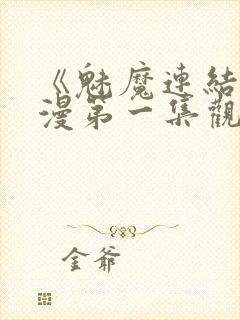 《魅魔連結
漫第一集觀
金爺